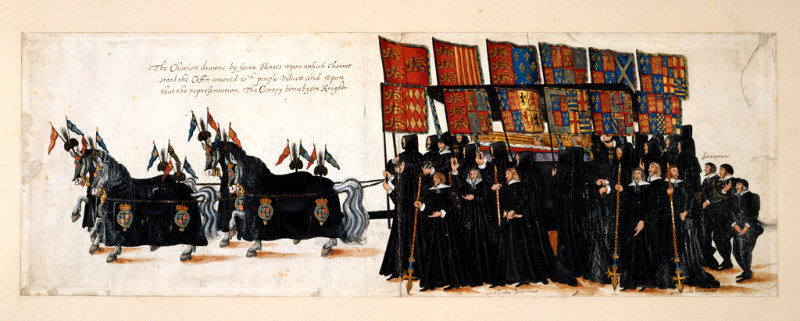 The Chariott drawne by foure Horses upon which Charret
stood the Coffin covered wth purple Velvett and upon
that the representation, The Canapy borne by six Knights.